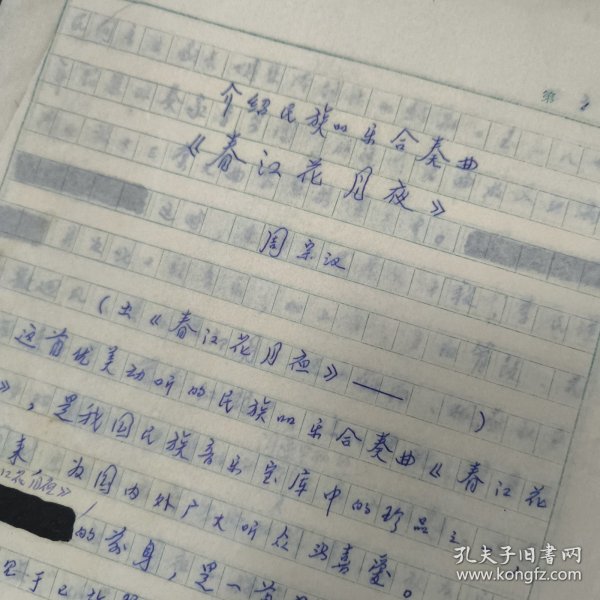 第
介绍民族器乐合奏曲
《春江花月夜》
周宗汉
(出《春江花月夜》—— )
这首优美动听的民族器乐合奏曲《春江花
》,是我国民族音乐宝库中的珍品之
来 为国内外广大听众所喜爱。
江花月夜》
的前身,是一首
孔夫子旧书网
www.kongfz.com